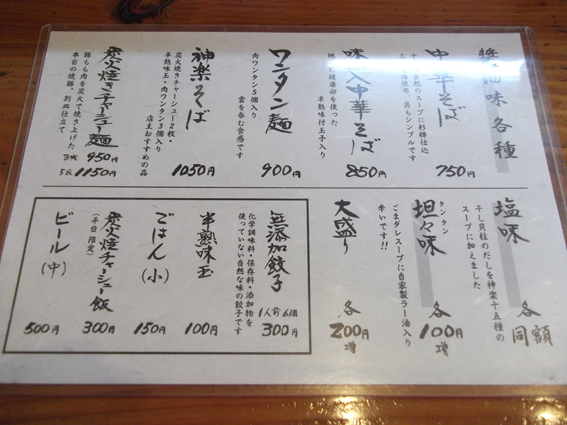 醤油味各種
中華そば
750円
味玉入中華そば
半熟味付玉子入り
850円
ワンタン麺
肉ワンタン5個入り
雲を呑む食感です
900円
神楽そば
炭火焼きチャーシュー2枚・
半熟味玉・肉ワンタン3個入り
店主おすすめの品
1050円
炭火焼きチャーシュー麺
豚もも肉を炭火で焼き上げた
本当の焼豚、別皿仕立て
3枚 950円
5枚 1150円
塩味
干し貝柱のだしを神楽十五種の
スープに加えました
各同額
坦々味
タンタン
ごまダレスープに自家製ラー油入り
辛いです!!
各100円増
大盛り
各200円増
無添加餃子
化学調味料・保存料・添加物を
使っていない自然な味の餃子です
1人前6個
300円
半熟味玉
100円
ごはん(小)
150円
炭火焼チャーシュー飯
(平日限定)
300円
ビール(中)
500円